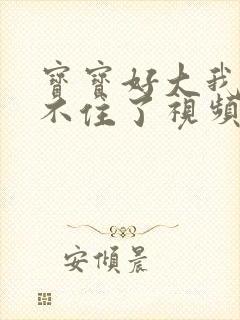 寶寶好大我
不住了視頻
安傾晨